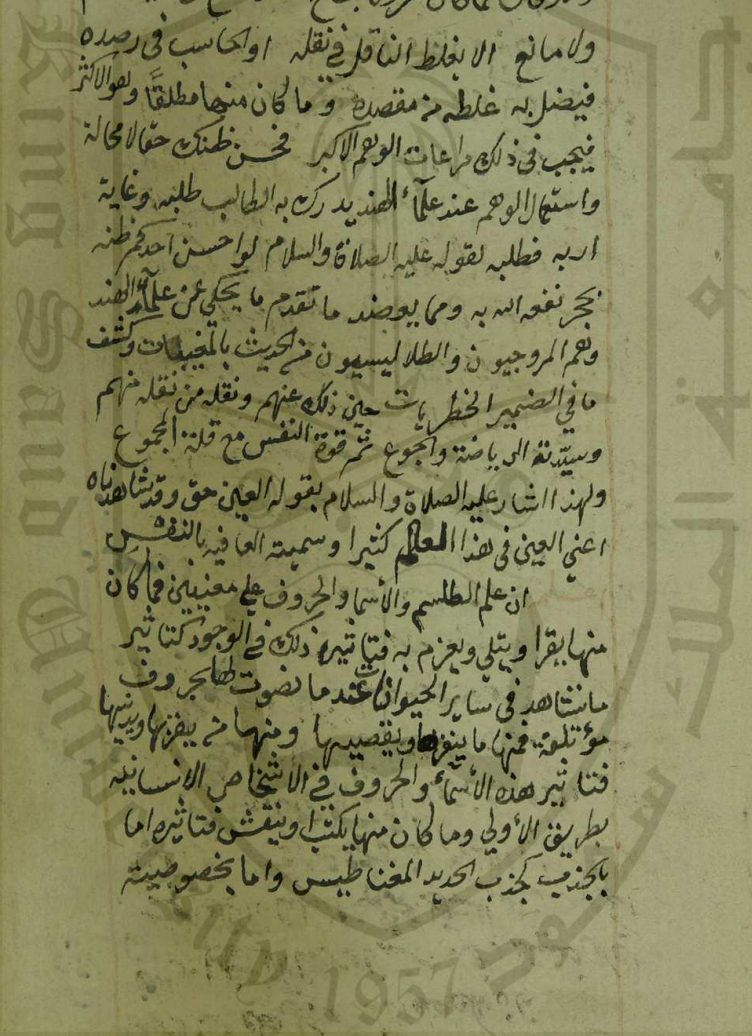 ولا مانع الا بغلط الناقل في نقله او الحاسب في رصده
فيضل به غلطه من مقصده وما كان منها مطلقًا وهو الاكثر
فيجب في ذلك مراعات الوهم الاكبر فحسن ظنك حقا لا محالة
واستعمال الوهم عند علمآء الهند يدرك به الطالب طلبه وغاية
اربه فطلبه لقوله عليه الصلاة والسلام لو احسن احدكم ظنه
بحجر نفعه الله به ومما يعضد ما تقدم ما يحكى عن علمآء الهند
وهم والطلاليسيون من الحديث بالمغيبات وكشف
ما في الضمير الخطريات حين ذلك عنهم ونقله من نقله منهم
الرياضة والجوع ثم قوة النفس مع قلة المجموع
ولهذا اشار عليه الصلاة والسلام بقوله العين حق وقد شاهدناه
اعني العين في هذا العالم كثيرا وسميته العافيه بالنفس
اعلم ان علم الطلسم والأسما والحروف على معنيين فما كان
منها يقرا ويتلى ويعزم به فتاثيره ذلك في الوجود كتاثير
ما نشاهد في ساير الحيوانات عند ما نصوت لها بحروف
مؤتلفة فمنها ما ينفرها ويقصيها ومنها من
فتاثير هذه الأسمآء والحروف في الاشخاص الانسانيه
بطريق الأولى وما كان منها يكتب او ينقش فتاثيره اما
بالجذب كجذب الحديد المغناطيس واما بخصوصية
King Saud University
جامعة الملك سعود
1957